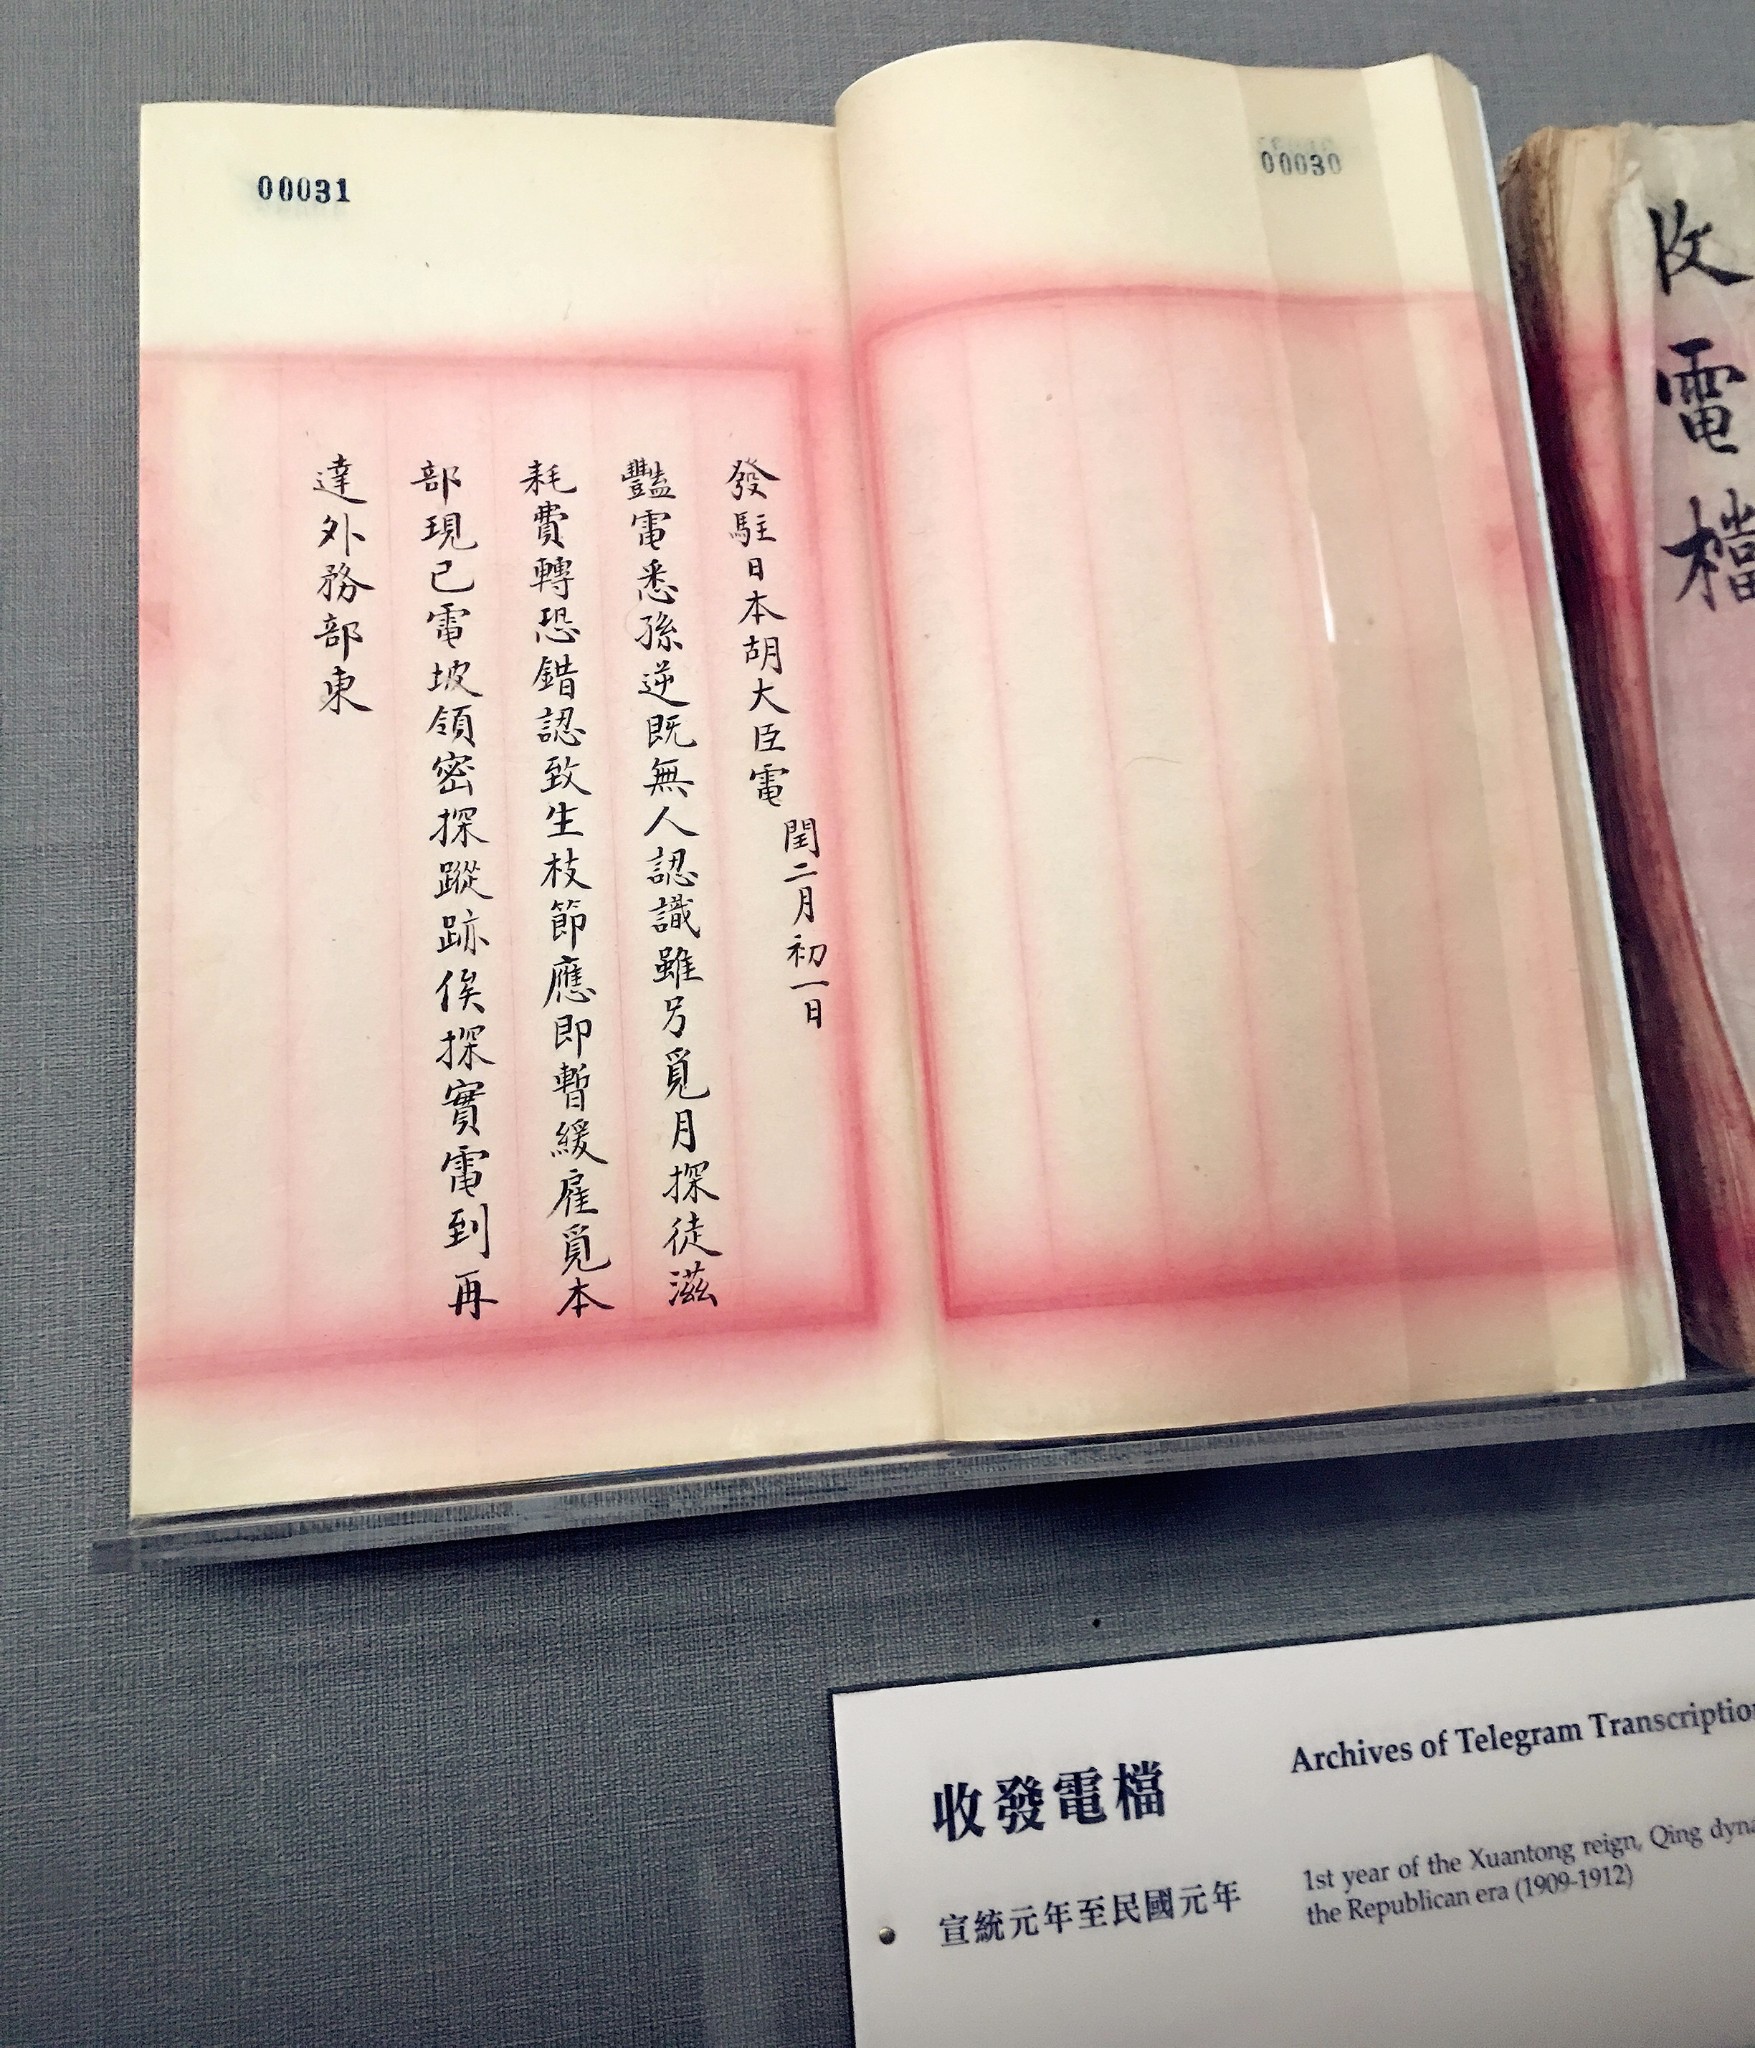 00030
00031
發駐日本胡大臣電 閏二月初一日
豔電悉孫逆既無人認識雖另覓月探徒滋
耗費轉恐錯認致生枝節應即暫緩雇覓本
部現已電坡領密探蹤跡俟探實電到再
達外務部東
收電檔
收發電檔
宣統元年至民國元年
Archives of Telegram Transcription
1st year of the Xuantong reign, Qing dyna
the Republican era (1909-1912)